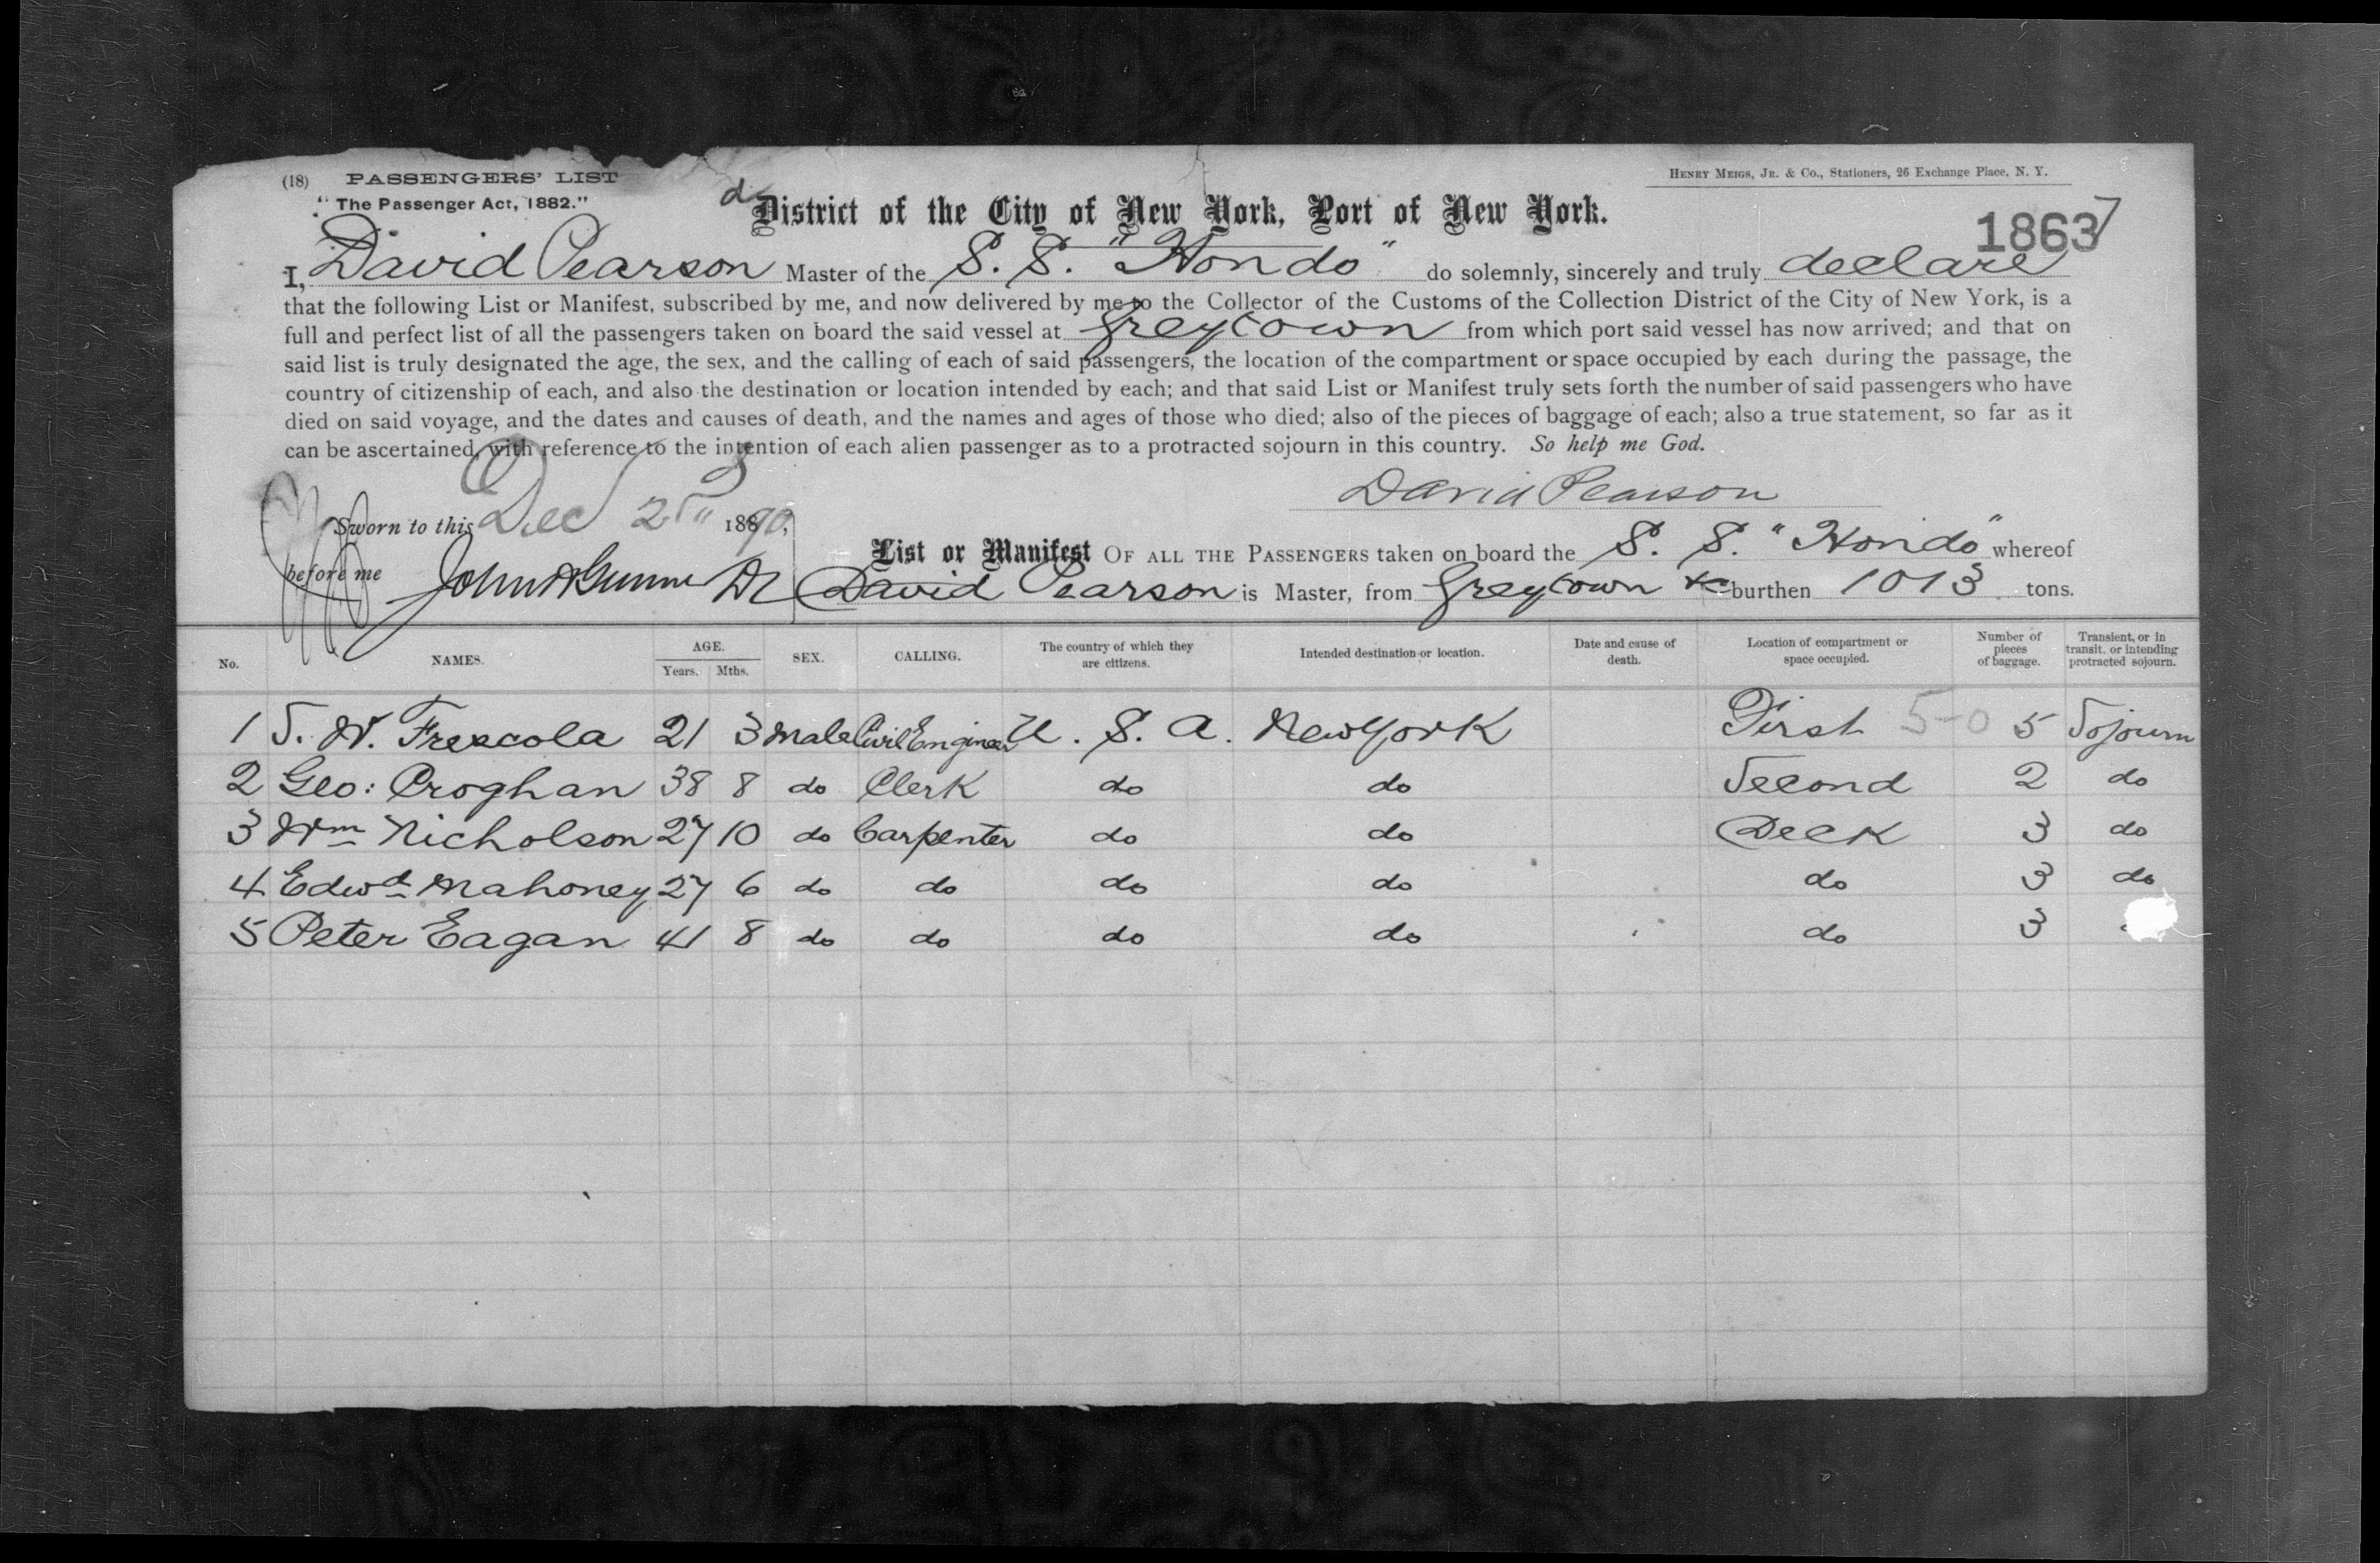 (18) PASSENGERS' LIST
HENRY MEIGS, JR. & CO., Stationers, 26 Exchange Place, N. Y.
"The Passenger Act, 1882."
d District of the City of New York, Port of New York.
1863
I, David Pearson Master of the S. S. "Hondo" do solemnly, sincerely and truly declare
that the following List or Manifest, subscribed by me, and now delivered by me to the Collector of the Customs of the Collection District of the City of New York, is a
full and perfect list of all the passengers taken on board the said vessel at Greytown from which port said vessel has now arrived; and that on
said list is truly designated the age, the sex, and the calling of each of said passengers, the location of the compartment or space occupied by each during the passage, the
country of citizenship of each, and also the destination or location intended by each; and that said List or Manifest truly sets forth the number of said passengers who have
died on said voyage, and the dates and causes of death, and the names and ages of those who died; also of the pieces of baggage of each; also a true statement, so far as it
can be ascertained, with reference to the intention of each alien passenger as to a protracted sojourn in this country. So help me God.
David Pearson
Sworn to this Dec 1890,
before me John
List or Manifest OF ALL THE PASSENGERS taken on board the S. S. "Hondo" whereof
David Pearson is Master, from Greytown burthen 1013 tons.
No. NAMES. AGE. Years. Mths. SEX. CALLING. The country of which they are citizens. Intended destination or location. Date and cause of death. Location of compartment or space occupied. Number of pieces of baggage. Transient, or in transit. or intending protracted sojourn.
1 S. W. Frescola 21 3 Male Civil Engineer U. S. A. New York First 5-0 5 Sojourn
2 Geo: Croghan 38 8 do Clerk do do Second 2 do
3 Wm Nicholson 27 10 do Carpenter do do Deck 3 do
4 Edwd Mahoney 27 6 do do do do do 3 do
5 Peter Eagan 41 8 do do do do do 3